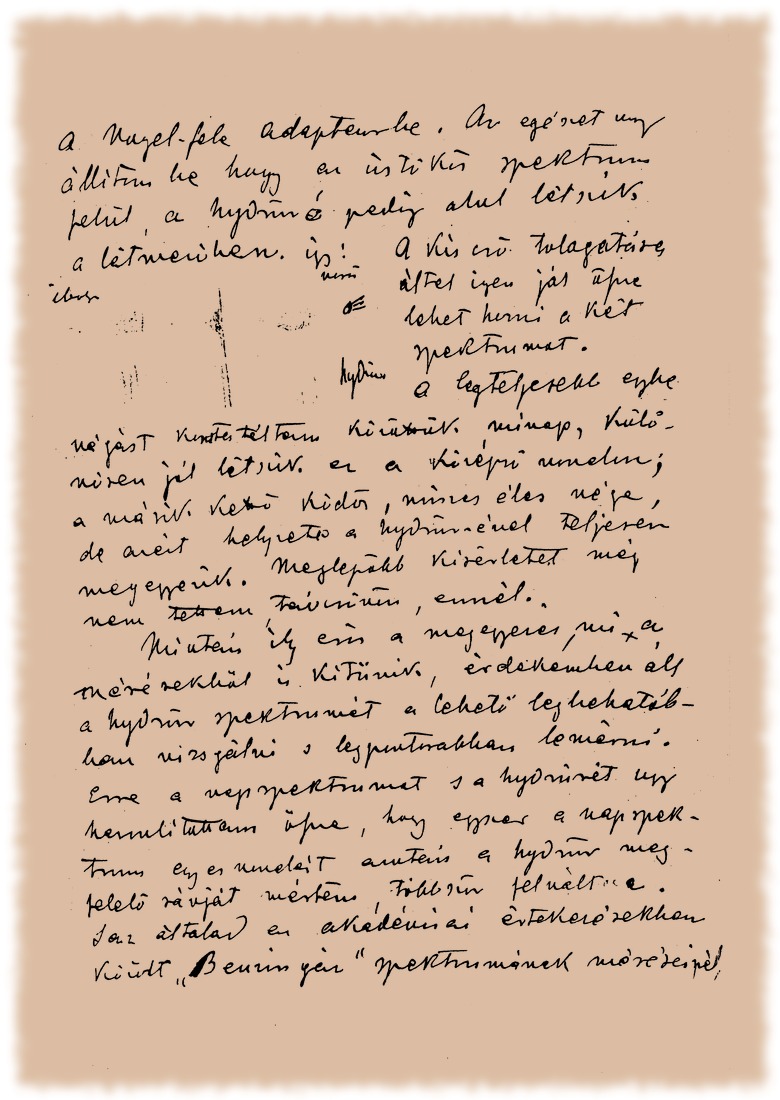 a Vogel-féle adapterbe. Az egészet ugy
állitom be hogy az üstökös spektrum
felül, a hydrür é pedig alul látszik
a látmezőben. igy:
A kis cső tologatása
által igen jól össze
lehet hozni a két
spektrumot.
hydrür
A legteljesebb egybe
vágást konstatáltam közöttük. minap, külö-
nösen jól látszik ez a középső vonalon;
a másik kettő ködös, nincs éles vége,
de azért helyzete a hydrür-ével teljesen
megegyezik. Meglepőbb kisérletet még
nem tettem távcsövön, ennél.
Miután ily erős a megegyezés, mi a
mérésekből is kitünik, érdekemben áll
a hydrür spektrumát a lehető legbehatób-
ban vizsgálni s legpontosabban lemérni.
Erre a napspektrumot s a hydrürét ugy
hasonlitottam össze, hogy egyszer a napspek-
trum egyes vonalait azután a hydrür meg-
felelő sávját mértem, többször felváltva.
Az általad az akadémiai értekezésekben
közölt „Benzin gáz" spektrumának méréseinél